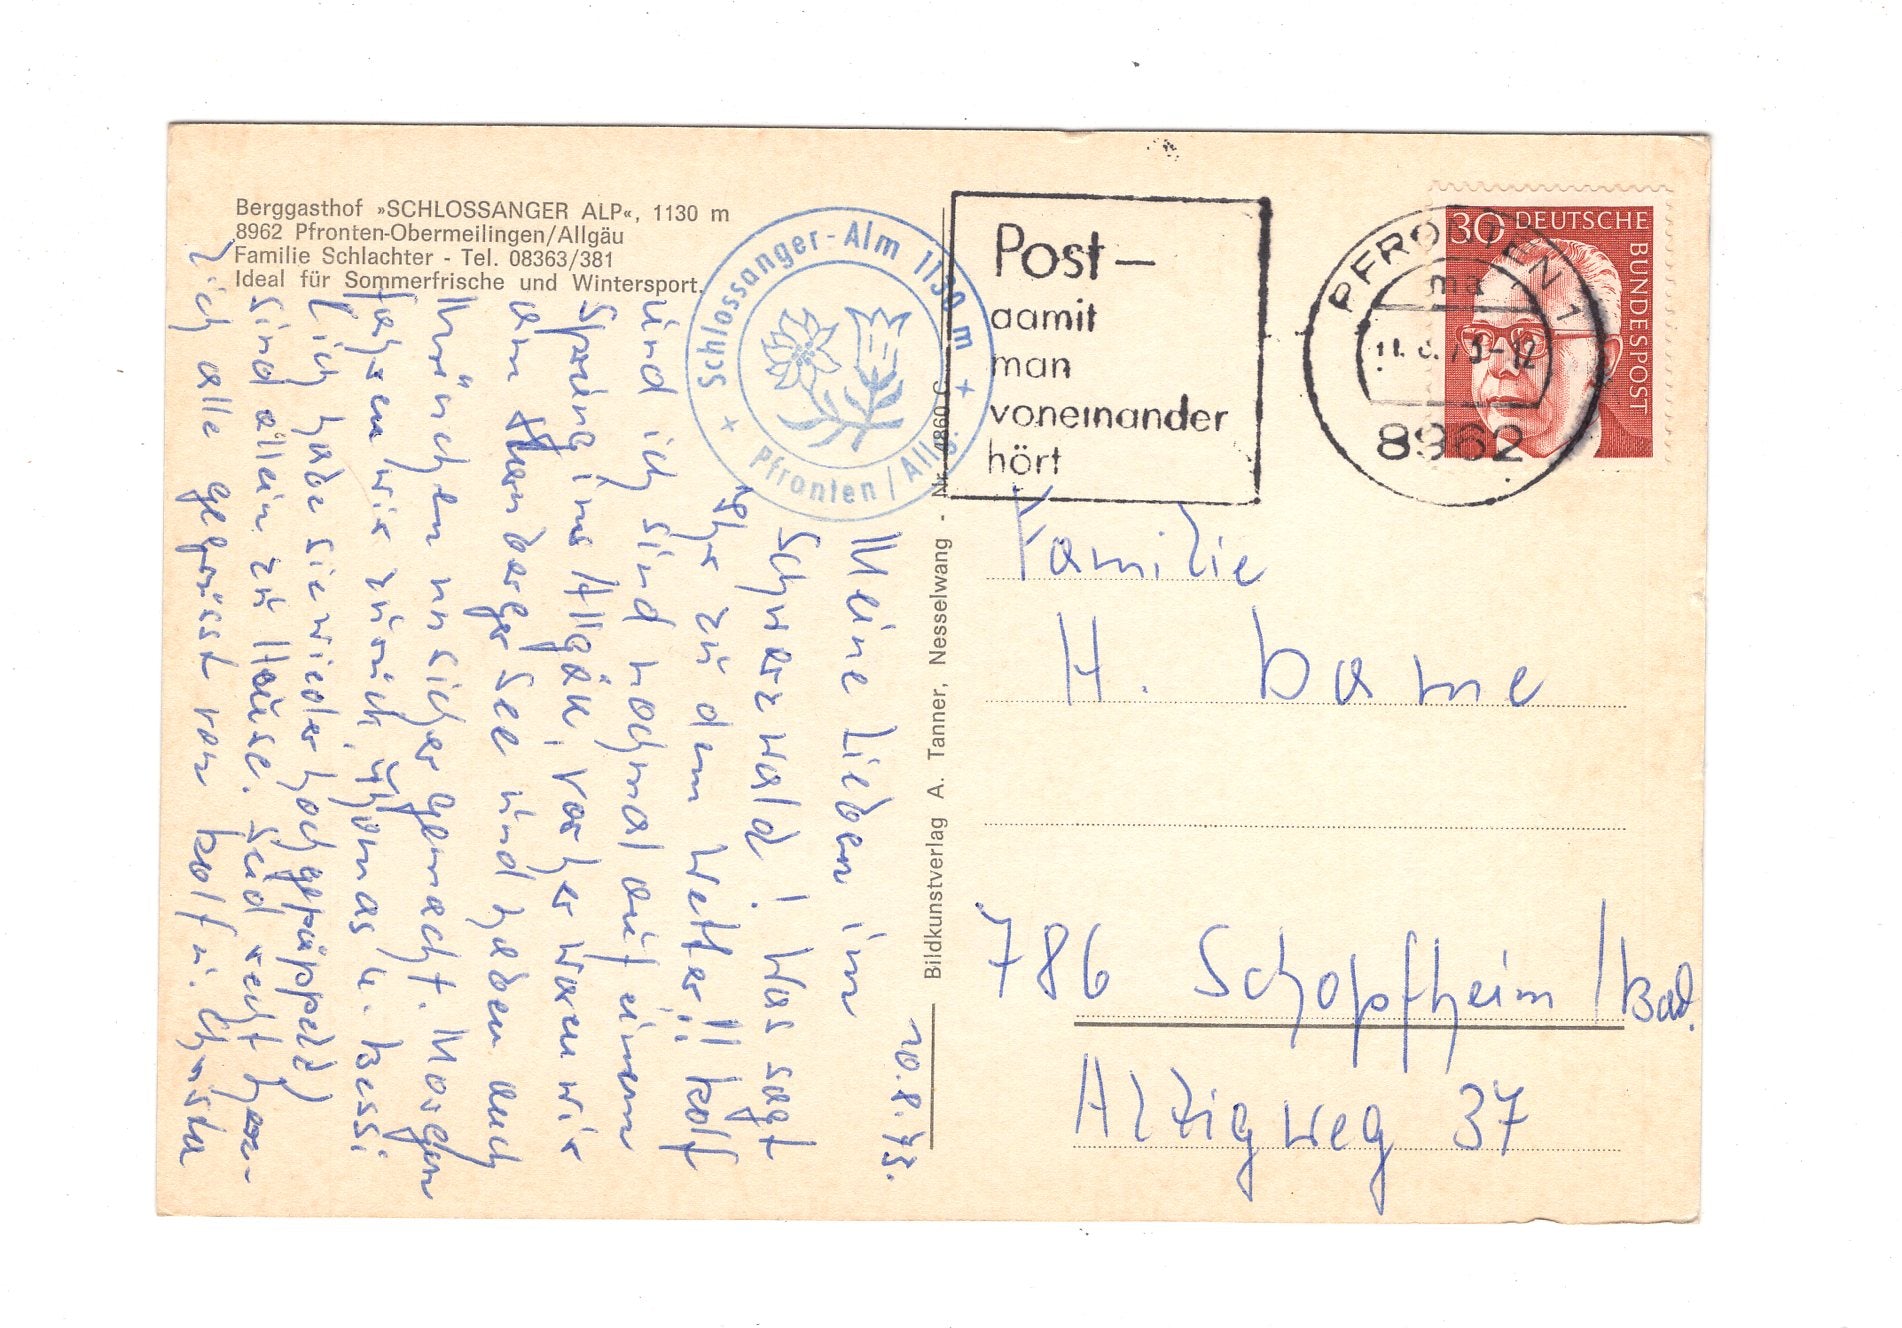 Berggasthof »SCHLOSSANGER ALP«, 1130 m
8962 Pfronten-Obermeilingen/Allgäu
Familie Schlachter - Tel. 08363/381
Ideal für Sommerfrische und Wintersport.
Schlossanger-Alm 1130 m
+ Pfronten / Allg. +
Post-
damit
man
voneinander
hört
PFRONTEN 1
ma
-12
8962
30 DEUTSCHE
BUNDESPOST
10.8.73.
Meine Lieben im
Schwarzwald! Was sagt
Ihr zu dem Wetter!! Rolf
und ich sind nochmal auf einem
Sprung ins Allgäu, vorher waren wir
am Starnberger See und haben auch
München unsicher gemacht. Morgen
fahren wir zurück, Thomas u. Bessi
(ich habe sie wieder hochgepäppelt)
sind allein zu Hause. Seid recht herz-
lich alle gegrüsst von Rolf u. Christa
Bildkunstverlag A. Tanner, Nesselwang - Nr. 4860 C
Familie
H. Dame
786 Schopfheim/Bad.
Altigweg 37